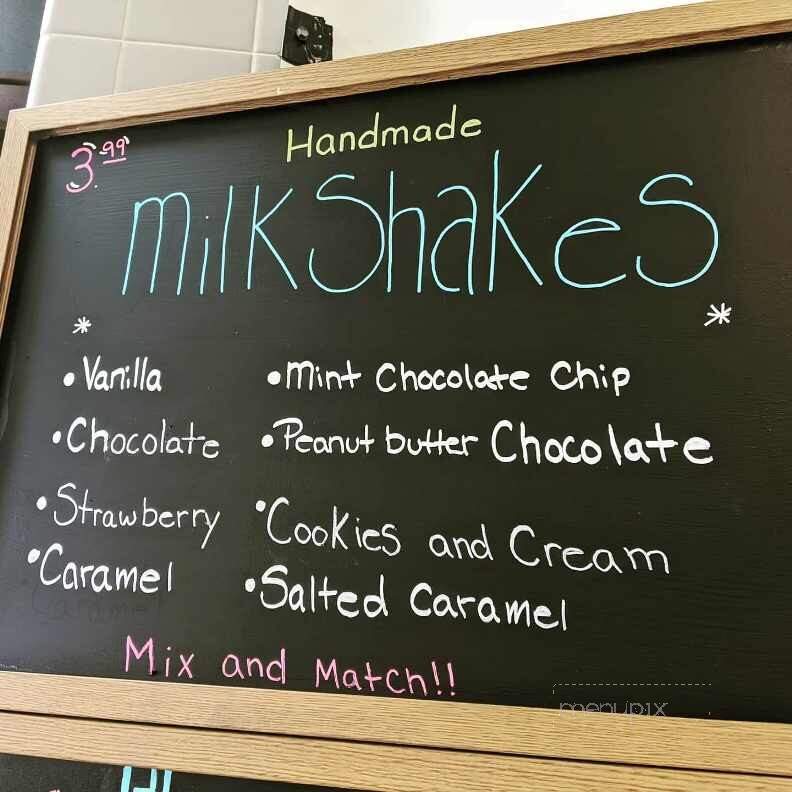 3.99
Handmade
milkShakes
* *
• Vanilla
• Chocolate
• Strawberry
• Caramel
• Mint Chocolate Chip
• Peanut butter Chocolate
• Cookies and Cream
• Salted Caramel
Mix and Match!!
menupix